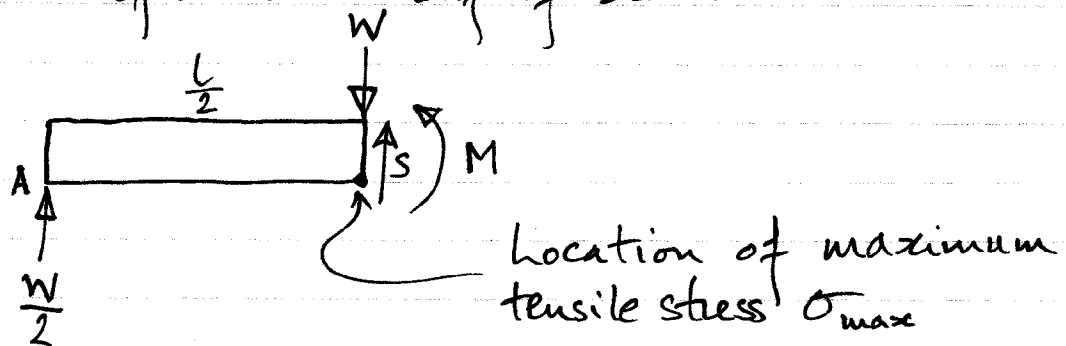 W
l/2
S
M
A
W/2
Location of maximum
tensile stress σmax